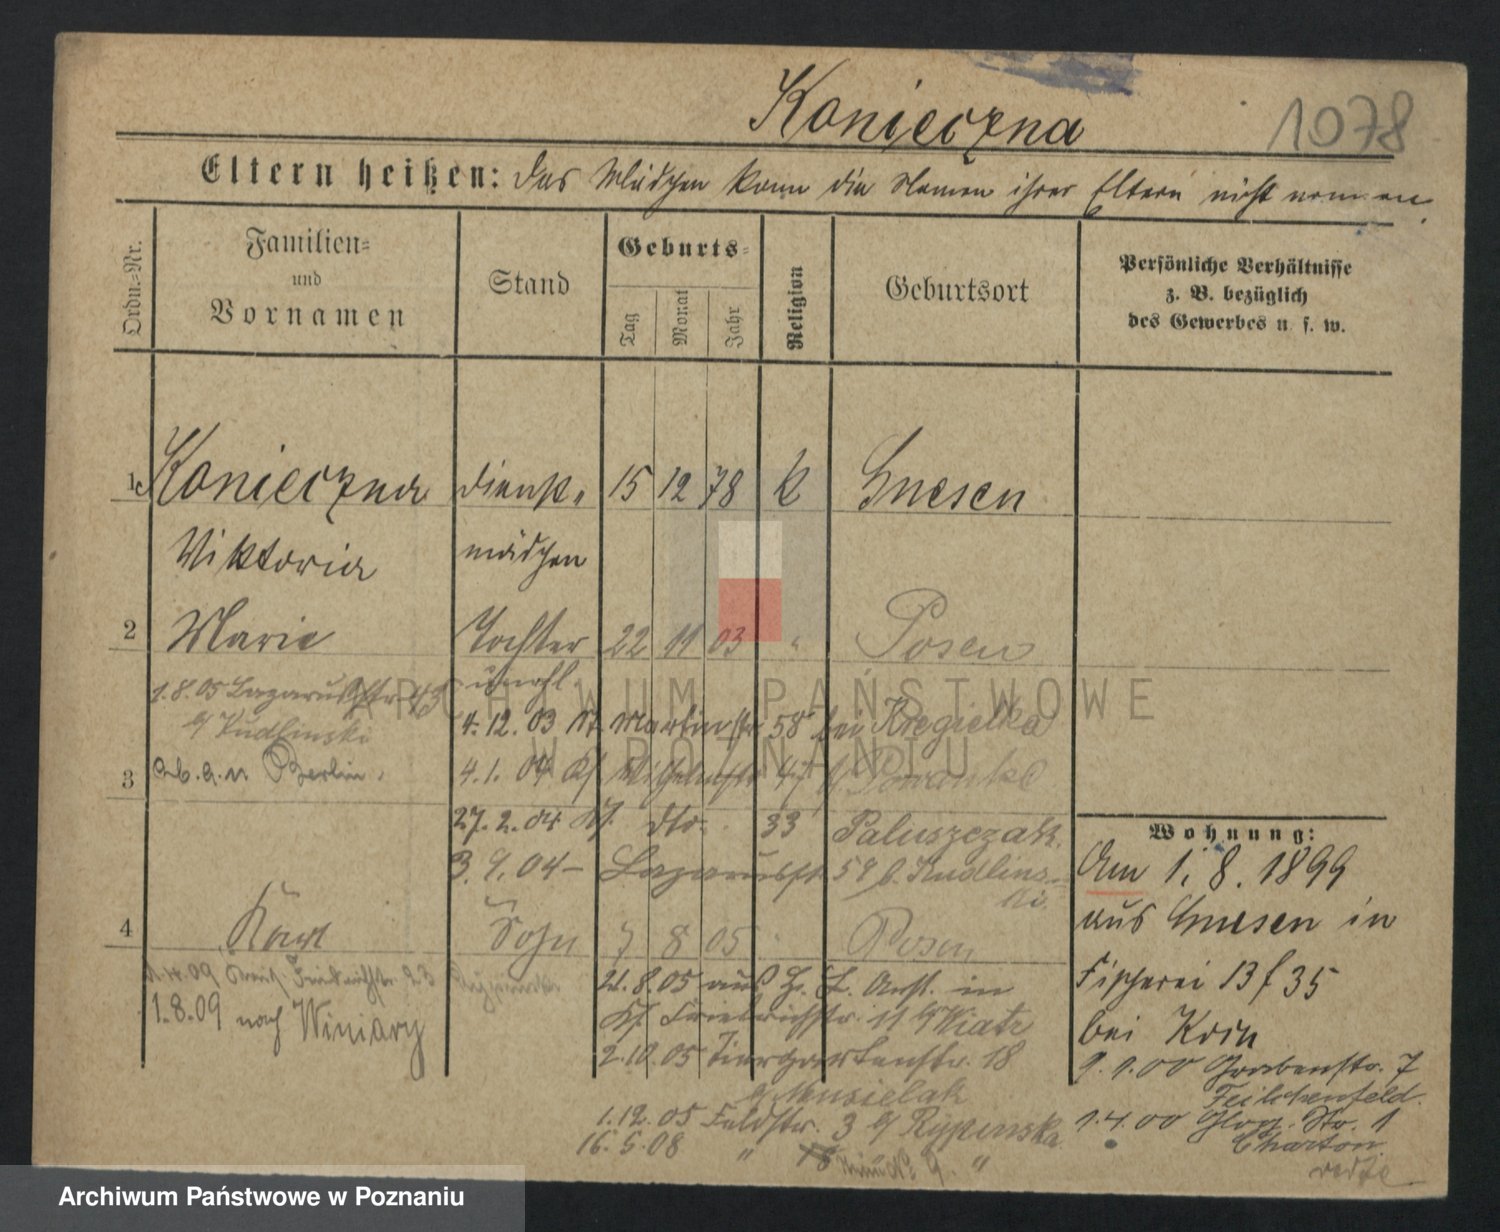 Konieczna
1078
Eltern heißen: Das Mädchen kann die Namen ihrer Eltern nicht nennen.
Ordn.-Nr.
Familien- und Vornamen
Stand
Geburts-
Tag
Monat
Jahr
Religion
Geburtsort
Persönliche Verhältnisse
z. B. bezüglich
des Gewerbes u. s. w.
1. Konieczna Dienst- 15 12 78 k Gnesen
Viktoria mädchen
2 Marie Tochter 22 11 03 " Posen
unehl.
1.8.05 Lazarusstr. 43
b/ Kudlinski
4.12.03 St. Martinstr 58 bei Kregielka
ab. g. n. Berlin.
3
4.1.04 47
27.2.04 dto. 33 Paluszczak.
3.9.04 – Lazarusstr 59 b. Kudlins-
ki
4 Karl Sohn 7 8 05 Posen
1.4.09 Friedrichstr. 23 Rypinska
1.8.09 nach Winiary
21.8.05 aus in
Friedrichstr. 11 b/ Wiatr
2.10.05 Tiergartenstr. 18
b/ Musielak
1.12.05 Feldstr. 3 b/ Rypinska
16.5.08 " 9. "
Wohnung:
Am 1. 8. 1899
aus Gnesen in
Fischerei 13 f 35
bei Korn
9.1.00 Grabenstr. 7
Feilchenfeld.
1.4.00 Glog. Str. 1
Charton.
ARCHIWUM PAŃSTWOWE
W POZNANIU
Archiwum Państwowe w Poznaniu